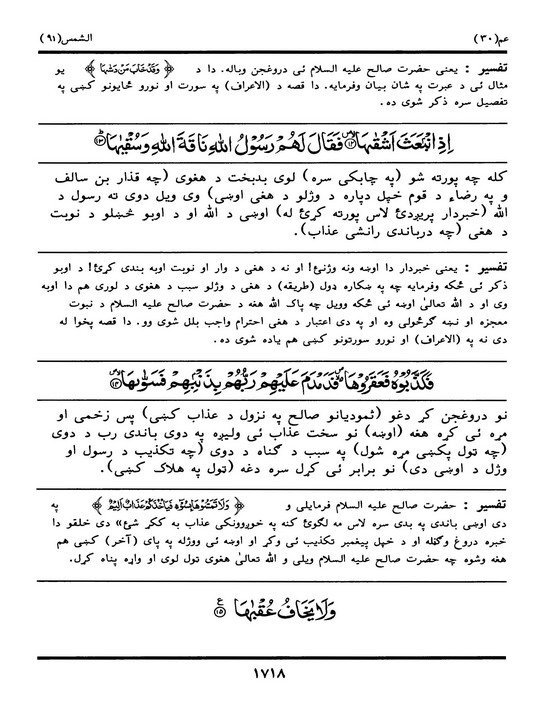 عم(٣٠) الشمس(٩١)
تفسیر : یعنی حضرت صالح علیه السلام ئی دروغجن وباله. دا د ﴿ وَقَدْ خَابَ مَنْ دَسّٰىهَا ﴾ یو
مثال ئی د عبرت په شان بیان وفرمایه. دا قصه د (الاعراف) په سورت او نورو ځایونو کښی په
تفصیل سره ذکر شوی ده.
اِذِ انْۢبَعَثَ اَشْقٰىهَا ۝١٢ فَقَالَ لَهُمْ رَسُوْلُ اللّٰهِ نَاقَةَ اللّٰهِ وَسُقْيٰهَا ۝١٣
کله چه پورته شو (په چابکی سره) لوی بدبخت د هغوی (چه قذار بن سالف
و په رضاء د قوم خپل دپاره د وژلو د هغی اوښی) وی ویل دوی ته رسول د
الله (خبردار پریږدئ لاس پورته کړئ له) اوښی د الله او د اوبو څښلو د نوبت
د هغی (چه درباندی رانشی عذاب).
تفسیر : یعنی خبردار دا اوښه ونه وژنئ! او نه د هغی د وار او نوبت اوبه بندی کړئ! د اوبو
ذکر ئی ځکه وفرمایه چه په ښکاره ډول (طریقه) د هغی د وژلو سبب د هغوی د لوری هم دا اوبه
وی او د الله تعالیٰ اوښه ئی ځکه وویل چه پاک الله هغه د حضرت صالح علیه السلام د نبوت
معجزه او نښه ګرځولی وه او په دی اعتبار د هغی احترام واجب بلل شوی وو. دا قصه پخوا له
دی نه په (الاعراف) او نورو سورتونو کښی هم یاده شوی ده.
فَكَذَّبُوْهُ فَعَقَرُوْهَا فَدَمْدَمَ عَلَيْهِمْ رَبُّهُمْ بِذَنْۢبِهِمْ فَسَوّٰىهَا ۝١٤
نو دروغجن کړ دغو (ثمودیانو صالح په نزول د عذاب کښی) پس زخمی او
مړه ئی کړه هغه (اوښه) نو سخت عذاب ئی ولیږه په دوی باندی رب د دوی
(چه ټول پکښی مړه شول) په سبب د ګناه د دوی (چه تکذیب د رسول او
وژل د اوښی دی) نو برابر ئی کړل سره دغه (ټول په هلاک کښی).
تفسیر : حضرت صالح علیه السلام فرمایلی و ﴿ وَلَا تَمَسُّوْهَا بِسُوْٓءٍ فَيَاْخُذَكُمْ عَذَابٌ اَلِيْمٌ ﴾ په
دی اوښی باندی په بدی سره لاس مه لګوئ کنه په خوږوونکی عذاب به ککړ شئ» دی خلقو دا
خبره دروغ وګڼله او د خپل پیغمبر تکذیب ئی وکړ او اوښه ئی ووژله په پای (آخر) کښی هم
هغه وشوه چه حضرت صالح علیه السلام ویلی و الله تعالیٰ هغوی ټول لوی او واړه پناه کړل.
وَلَا يَخَافُ عُقْبٰهَا ۝١٥
١٧١٨